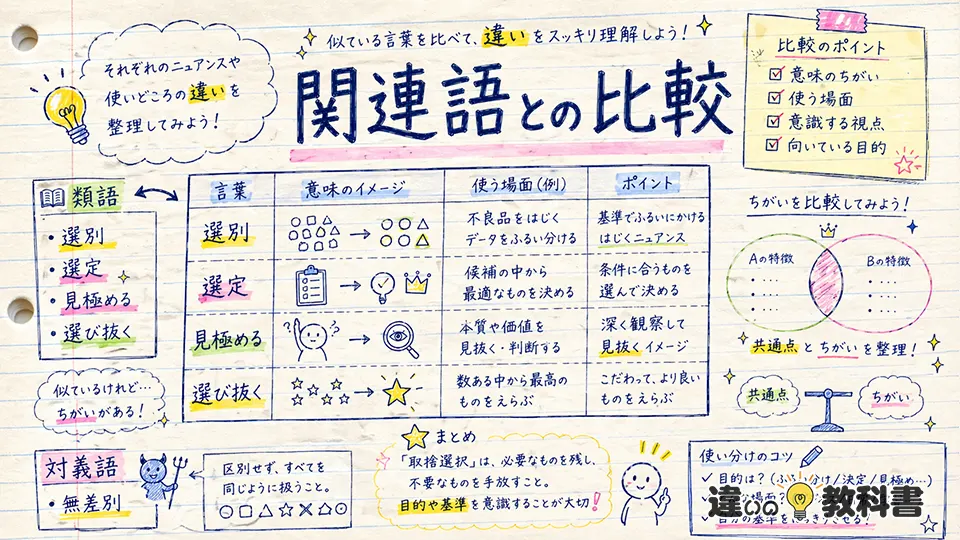 似ている言葉を比べて、違いをスッキリ理解しよう！
関連語との比較
それぞれのニュアンスや
使いどころの違いを
整理してみよう！
比較のポイント
意味のちがい
使う場面
意識する視点
向いている目的
類語
・選別
・選定
・見極める
・選び抜く
似ているけれど…
ちがいがある！
言葉 意味のイメージ 使う場面(例) ポイント
選別
不良品をはじく
データをふるい分ける
基準でふるいにかける
はじくニュアンス
選定
候補の中から
最適なものを決める
条件に合うものを
選んで決める
見極める
本質や価値を
見抜く・判断する
深く観察して
見抜くイメージ
選び抜く
数ある中から最高の
ものをえらぶ
こだわって、より良い
ものをえらぶ
ちがいを比較してみよう！
Aの特徴
Bの特徴
共通点とちがいを整理！
共通点
ちがい
対義語
・無差別
区別せず、すべてを
同じように扱うこと。
まとめ
「取捨選択」は、必要なものを残し、
不要なものを手放すこと。
目的や基準を意識することが大切！
使い分けのコツ
✓ 目的は？(ふるい分け/決定/見極め…)
場面？
違いの教科書